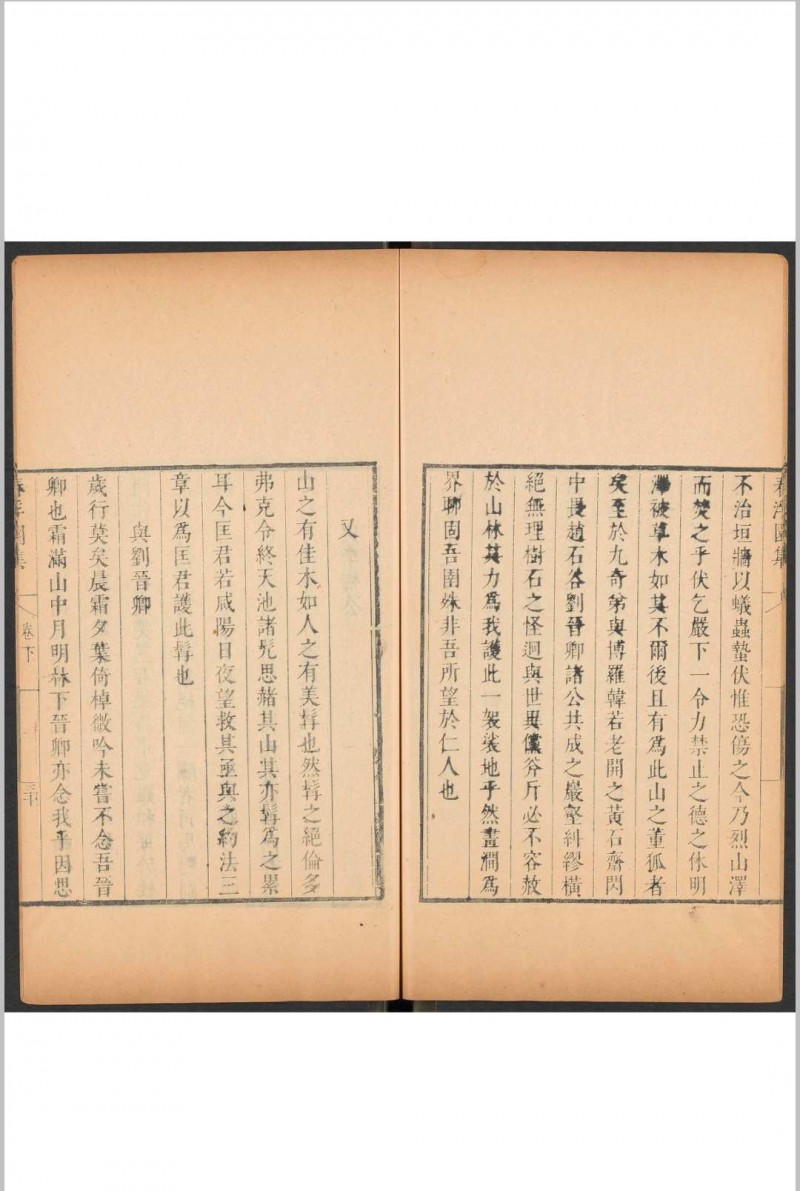 不治垣牆以蟻蟲蟄伏惟恐傷之今乃烈山澤
而焚之乎伏乞嚴下一令力禁止之德之休明
澤被草木如其不爾後且有為此山之董狐者
矣至於九奇第與博羅韓若老開之黃石齋閃
中畏趙石谷劉晉卿諸公共成之巖壑糾繆橫
絕無理樹石之怪迴與世異儻斧斤必不容赦
於山林其力為我護此一袈裟地乎然畫澗為
界聊固吾圉殊非吾所望於仁人也
又
山之有佳木如人之有美髯也然髯之絕倫多
弗克令終天池諸髡思赭其山其亦髯為之累
耳今匡君若咸陽日夜望救其亟與之約法三
章以為匡君護此髯也
與劉晉卿
歲行莫矣晨霜夕葉倚棹微吟未嘗不念吾晉
卿也霜滿山中月明林下晉卿亦念我乎因思
春浮園集
卷下
三十